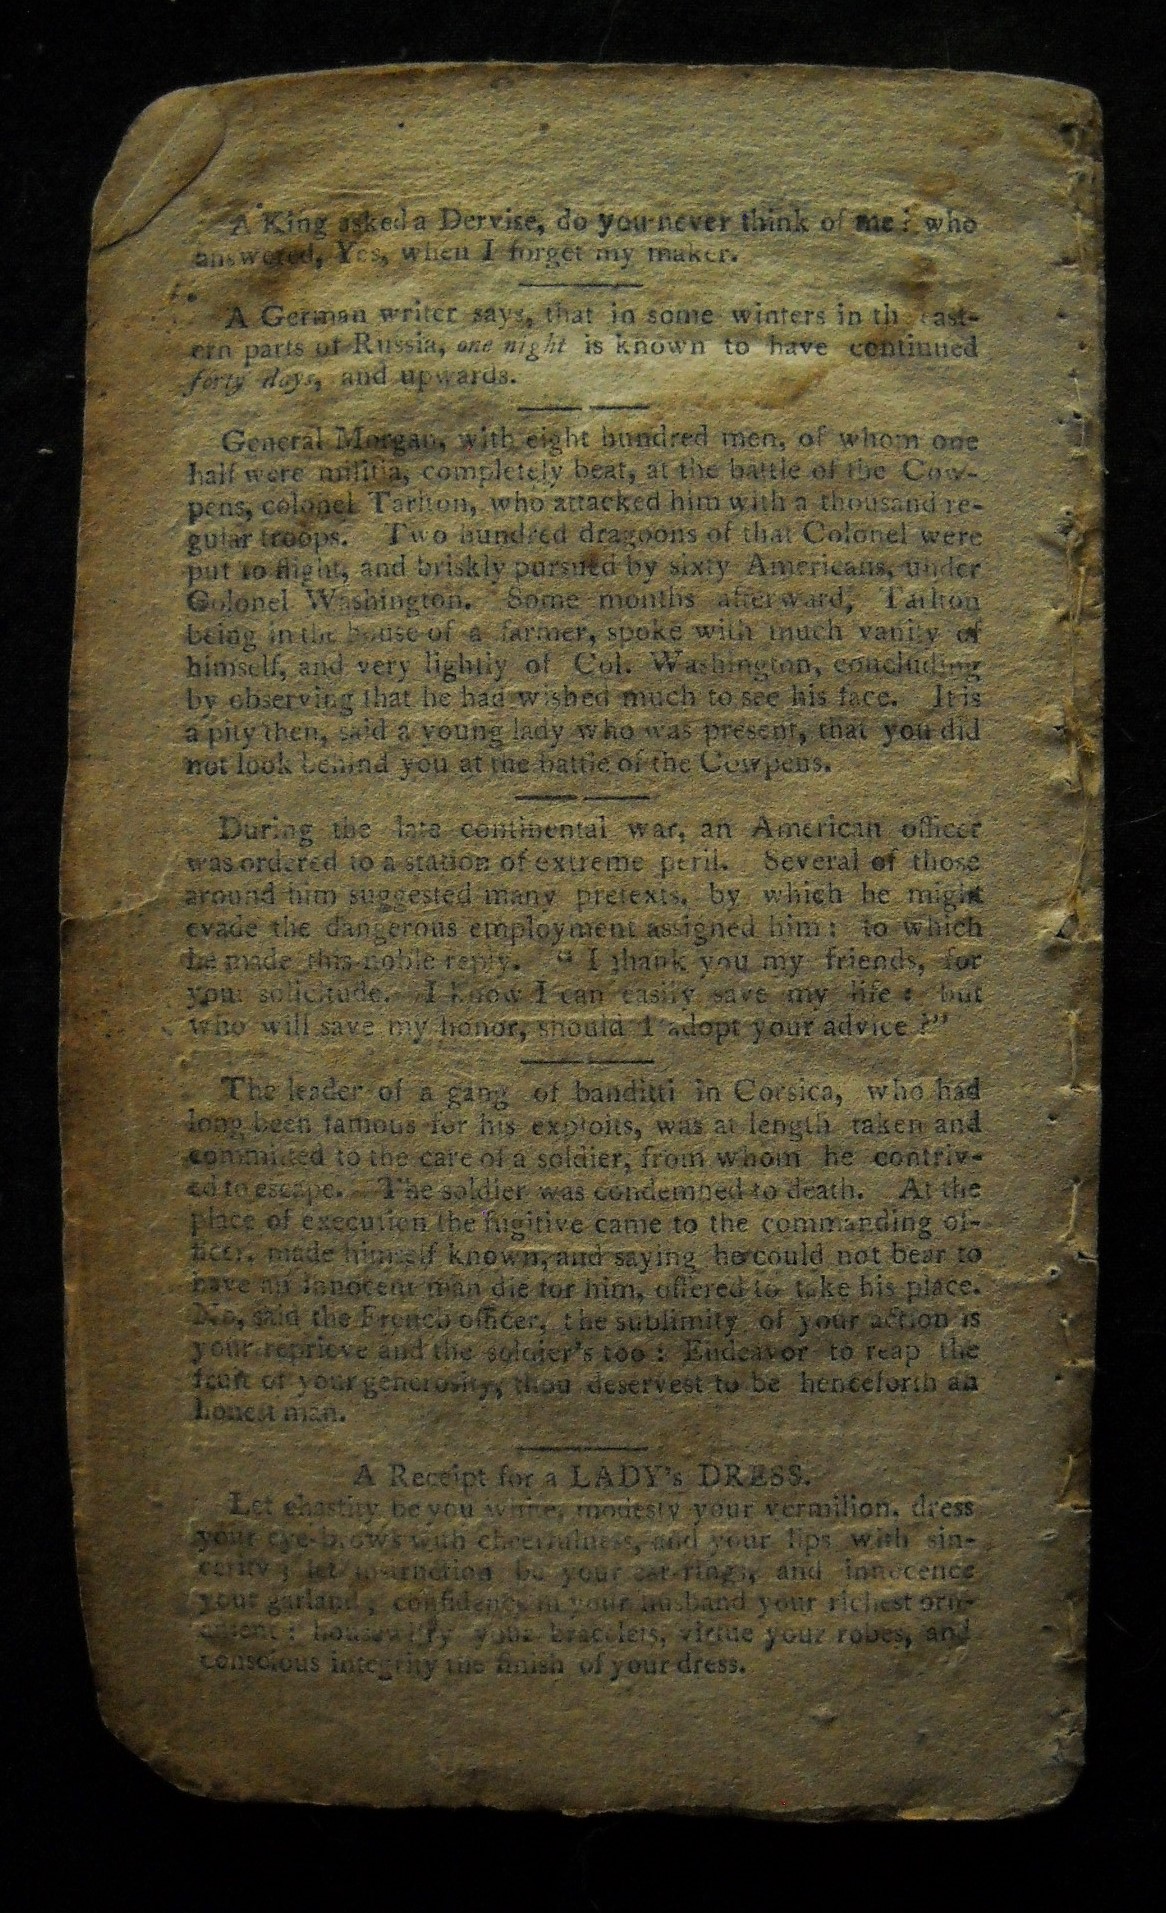 A King asked a Dervise, do you never think of me? who
answered, Yes, when I forget my maker.
A German writer says, that in some winters in the east-
ern parts of Russia, one night is known to have continued
forty days, and upwards.
General Morgan, with eight hundred men, of whom one
half were militia, completely beat, at the battle of the Cow-
pens, colonel Tarlton, who attacked him with a thousand re-
gular troops. Two hundred dragoons of that Colonel were
put to flight, and briskly pursued by sixty Americans, under
Colonel Washington. Some months afterward, Tarlton
being in the house of a farmer, spoke with much vanity of
himself, and very lightly of Col. Washington, concluding
by observing that he had wished much to see his face. It is
a pity then, said a young lady who was present, that you did
not look behind you at the battle of the Cowpens.
During the late continental war, an American officer
was ordered to a station of extreme peril. Several of those
around him suggested many pretexts, by which he might
evade the dangerous employment assigned him: to which
he made this noble reply. "I thank you my friends, for
your solicitude. I know I can easily save my life: but
who will save my honor, should I adopt your advice?"
The leader of a gang of banditti in Corsica, who had
long been famous for his exploits, was at length taken and
committed to the care of a soldier, from whom he contriv-
ed to escape. The soldier was condemned to death. At the
place of execution the fugitive came to the commanding of-
ficer, made himself known, and saying he could not bear to
have an innocent man die for him, offered to take his place.
No, said the French officer, the sublimity of your action is
your reprieve and the soldier's too: Endeavor to reap the
fruit of your generosity, thou deservest to be henceforth an
honest man.
A Receipt for a LADY's DRESS.
Let chastity be you white, modesty your vermilion, dress
your eye-brows with cheerfulness, and your lips with sin-
cerity; let instruction be your ear-rings, and innocence
your garland; confidence in your husband your richest orn-
ament: housewifry your bracelets, virtue your robes, and
conscious integrity the finish of your dress.